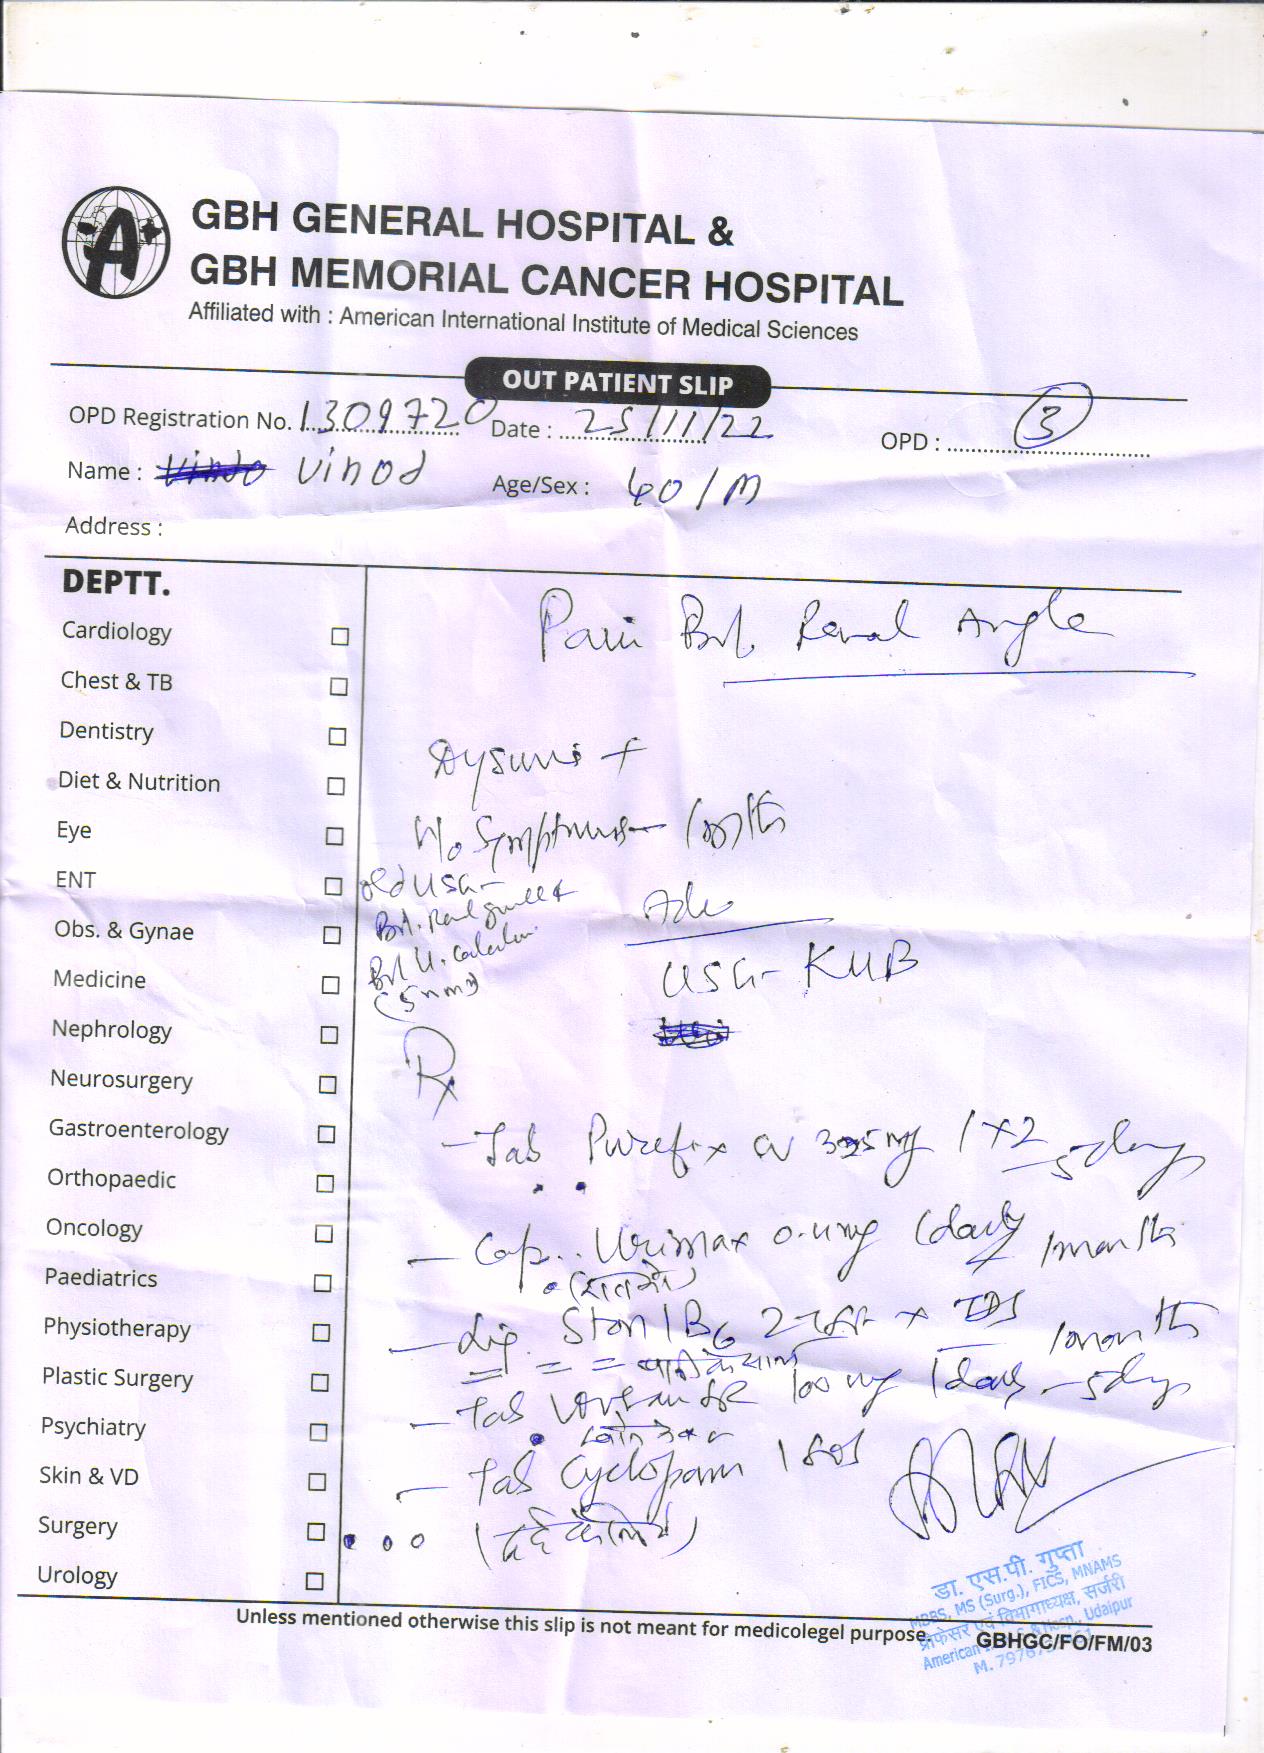 GBH GENERAL HOSPITAL &
GBH MEMORIAL CANCER HOSPITAL
Affiliated with : American International Institute of Medical Sciences
OUT PATIENT SLIP
OPD Registration No. 1309720 Date : 25/11/22 OPD : 3
Name : Vinod Age/Sex : 40/M
Address :
DEPTT.
Cardiology
Chest & TB
Dentistry
Diet & Nutrition
Eye
ENT
Obs. & Gynae
Medicine
Nephrology
Neurosurgery
Gastroenterology
Orthopaedic
Oncology
Paediatrics
Physiotherapy
Plastic Surgery
Psychiatry
Skin & VD
Surgery
Urology
Pain B/L Renal Angle
Dysuria +
old USG-
B/L Renal
B/L U.
(5mm)
Adv
USG- KUB
Rx
- Tab Purefix CV 325mg 1x2 - 5 days
- Cap. Urimax 0.4mg 1 daily 1 month
(रात में)
- Liq. Ston 1 B6 2 x TDS 1 month
- Tab SR 100 mg 1 daily - 5 days
- Tab Cyclopam 1 SOS
(दर्द के लिये)
डा. एस.पी. गुप्ता
MBBS, MS (Surg.), FICS, MNAMS
प्रोफेसर एवं विभागाध्यक्ष, सर्जरी
American Udaipur
Unless mentioned otherwise this slip is not meant for medicolegel purpose.
GBHGC/FO/FM/03